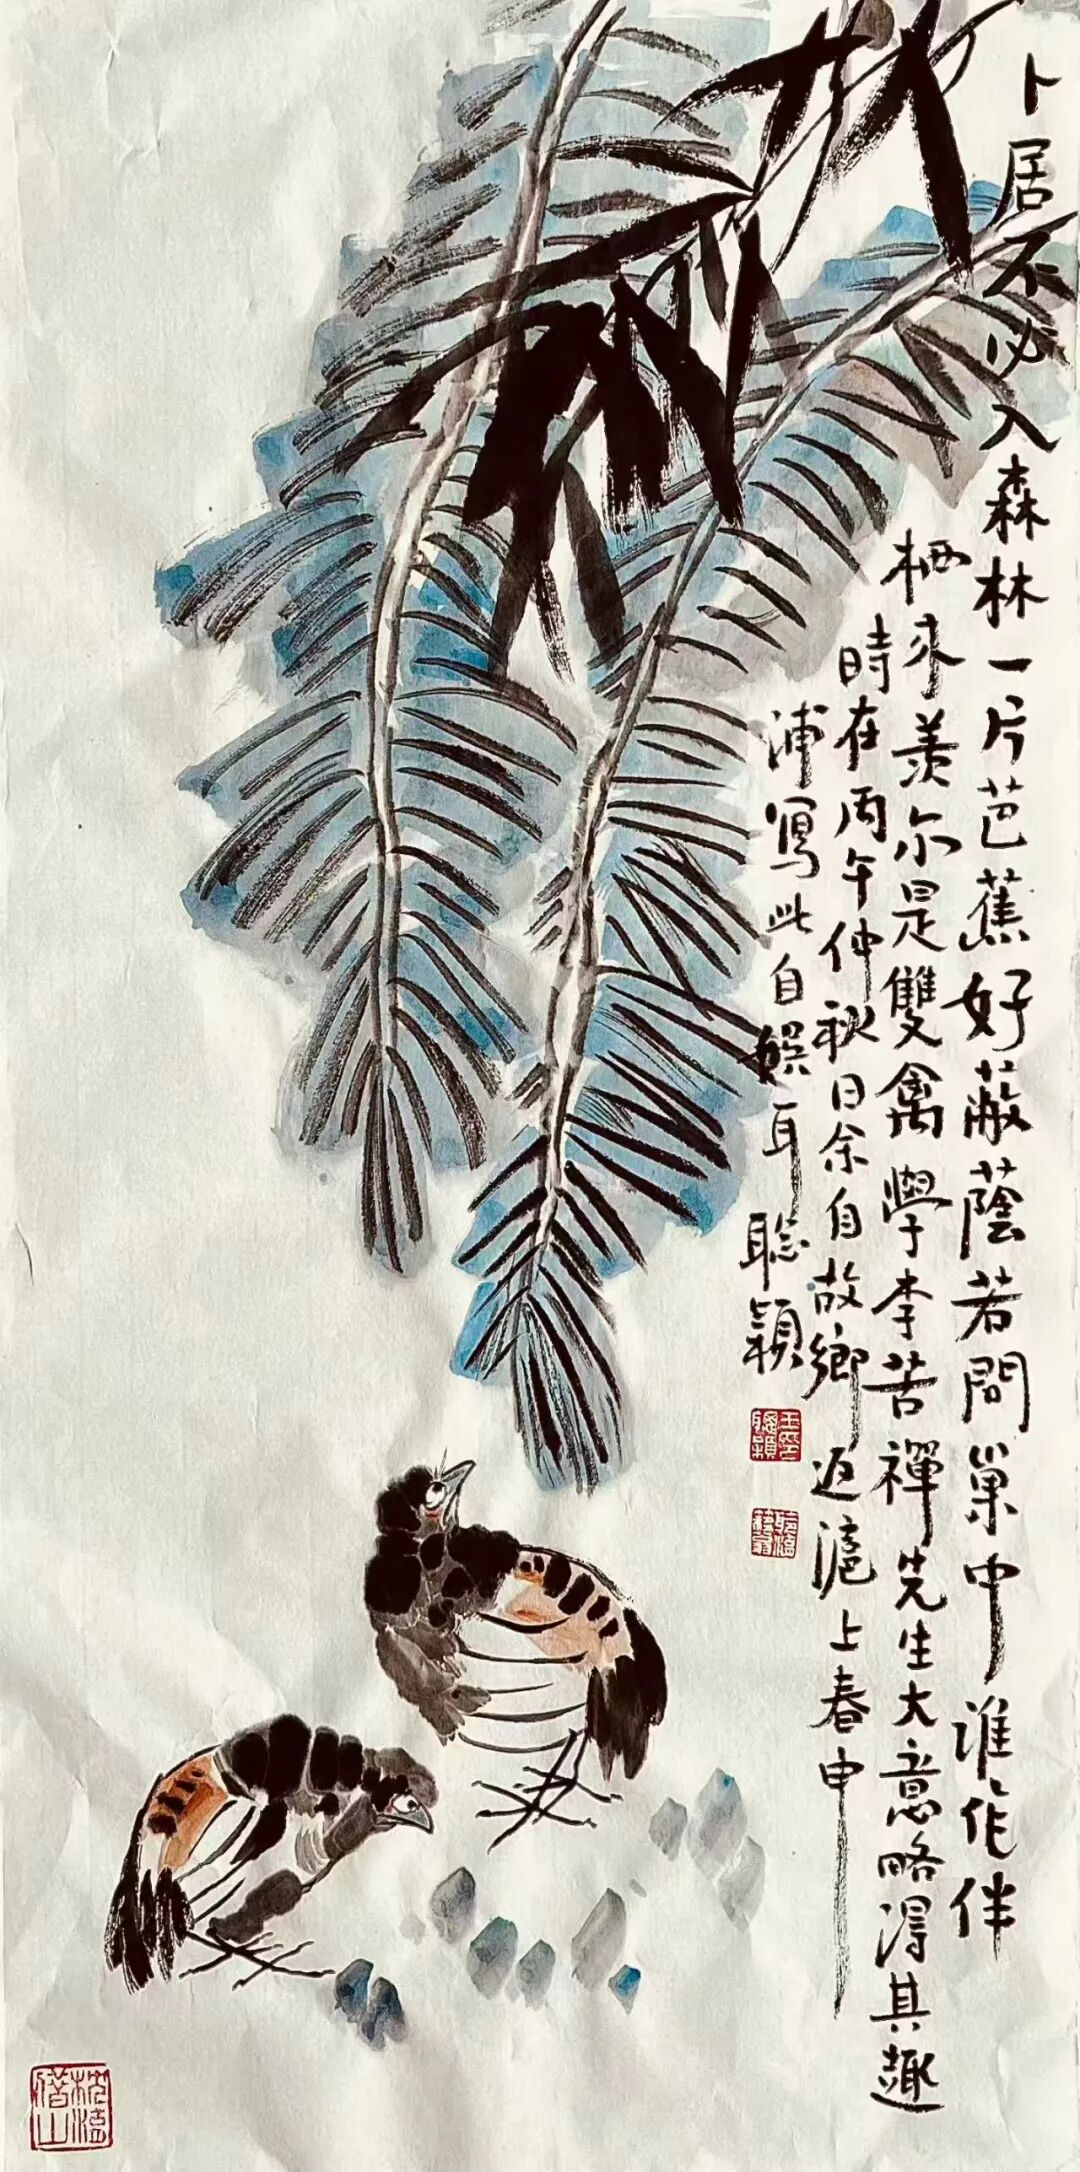 卜居不必入森林一片芭蕉好蔽蔭若問巢中誰作伴
栖來羨尔是雙禽學李苦禪先生大意略得其趣
時在丙午仲秋日余自故鄉返滬上春申
浦寫此自娛耳聰穎